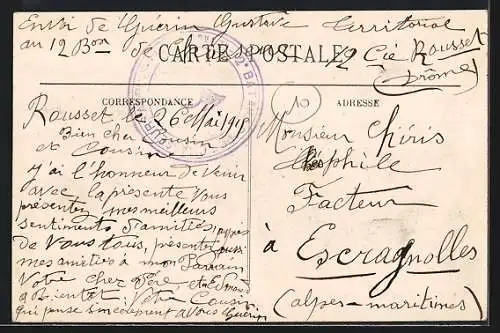 Envoi de Guérin Gustave Territorial
au 12 Bon de Chasseurs 12 Cie Rousset
(Drôme)
CARTE POSTALE
CORRESPONDANCE
ADRESSE
Rousset le 26 Mai 1915
Bien cher Cousin
et Cousine
J'ai l'honneur de venir
avec la présente vous
présenter mes meilleurs
sentiments d'amitiés
de Vous tous, présentez aussi
mes amitiés à mon Parrain
Votre cher Père,
a Bientôt Votre Cousin
qui pense sincèrement a Vous Guérin
10
Monsieur Chéris
Théophile
Facteur
à Escragnolles
(alpes-maritimes)